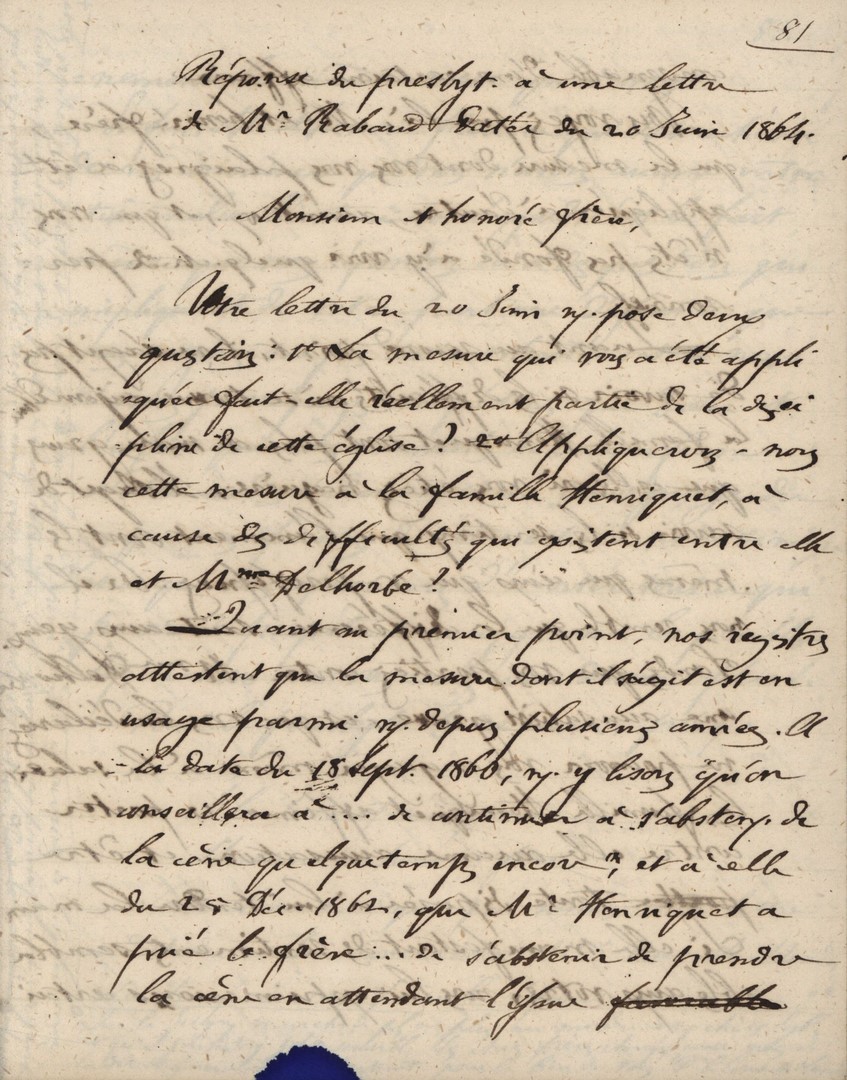 81
Réponse du presbyt. à une lettre
de Mr Rabaud datée du 20 Juin 1864.
Monsieur et honoré frère,
Votre lettre du 20 Juin n. pose deux
questions : 1o La mesure qui vous a été appli
quée fait-elle réellement partie de la disci
pline de cette église ? 2o Appliquerons-nous
cette mesure à la famille Henriquet, à
cause des difficultés qui existent entre elle
et Mme Delhorbe ?
Quant au premier point, nos régistres
attestent que la mesure dont il s'agit est en
usage parmi n. depuis plusieurs années. A
la date du 18 Sept. 1860, n. y lisons "qu'on
conseillera à ... de continuer à s'absten. de
la cène quelque temps encore", et à celle
du 25 Déc. 1862, que Mr Henriquet a
prié le frère ... de s'abstenir de prendre
la cène en attendant l'issue